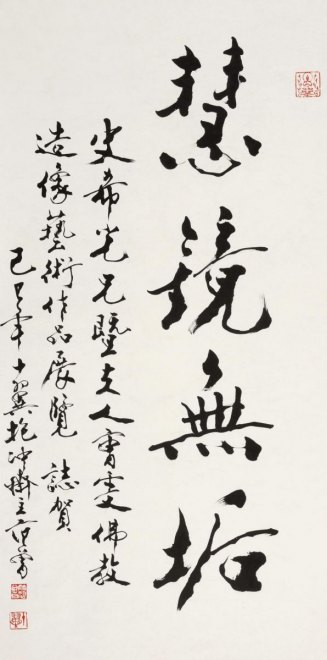 慧鏡無垢
史希光兄暨夫人曹雯佛教
造像藝術作品展覽 誌賀
己巳年十翼抱沖齋主范曾